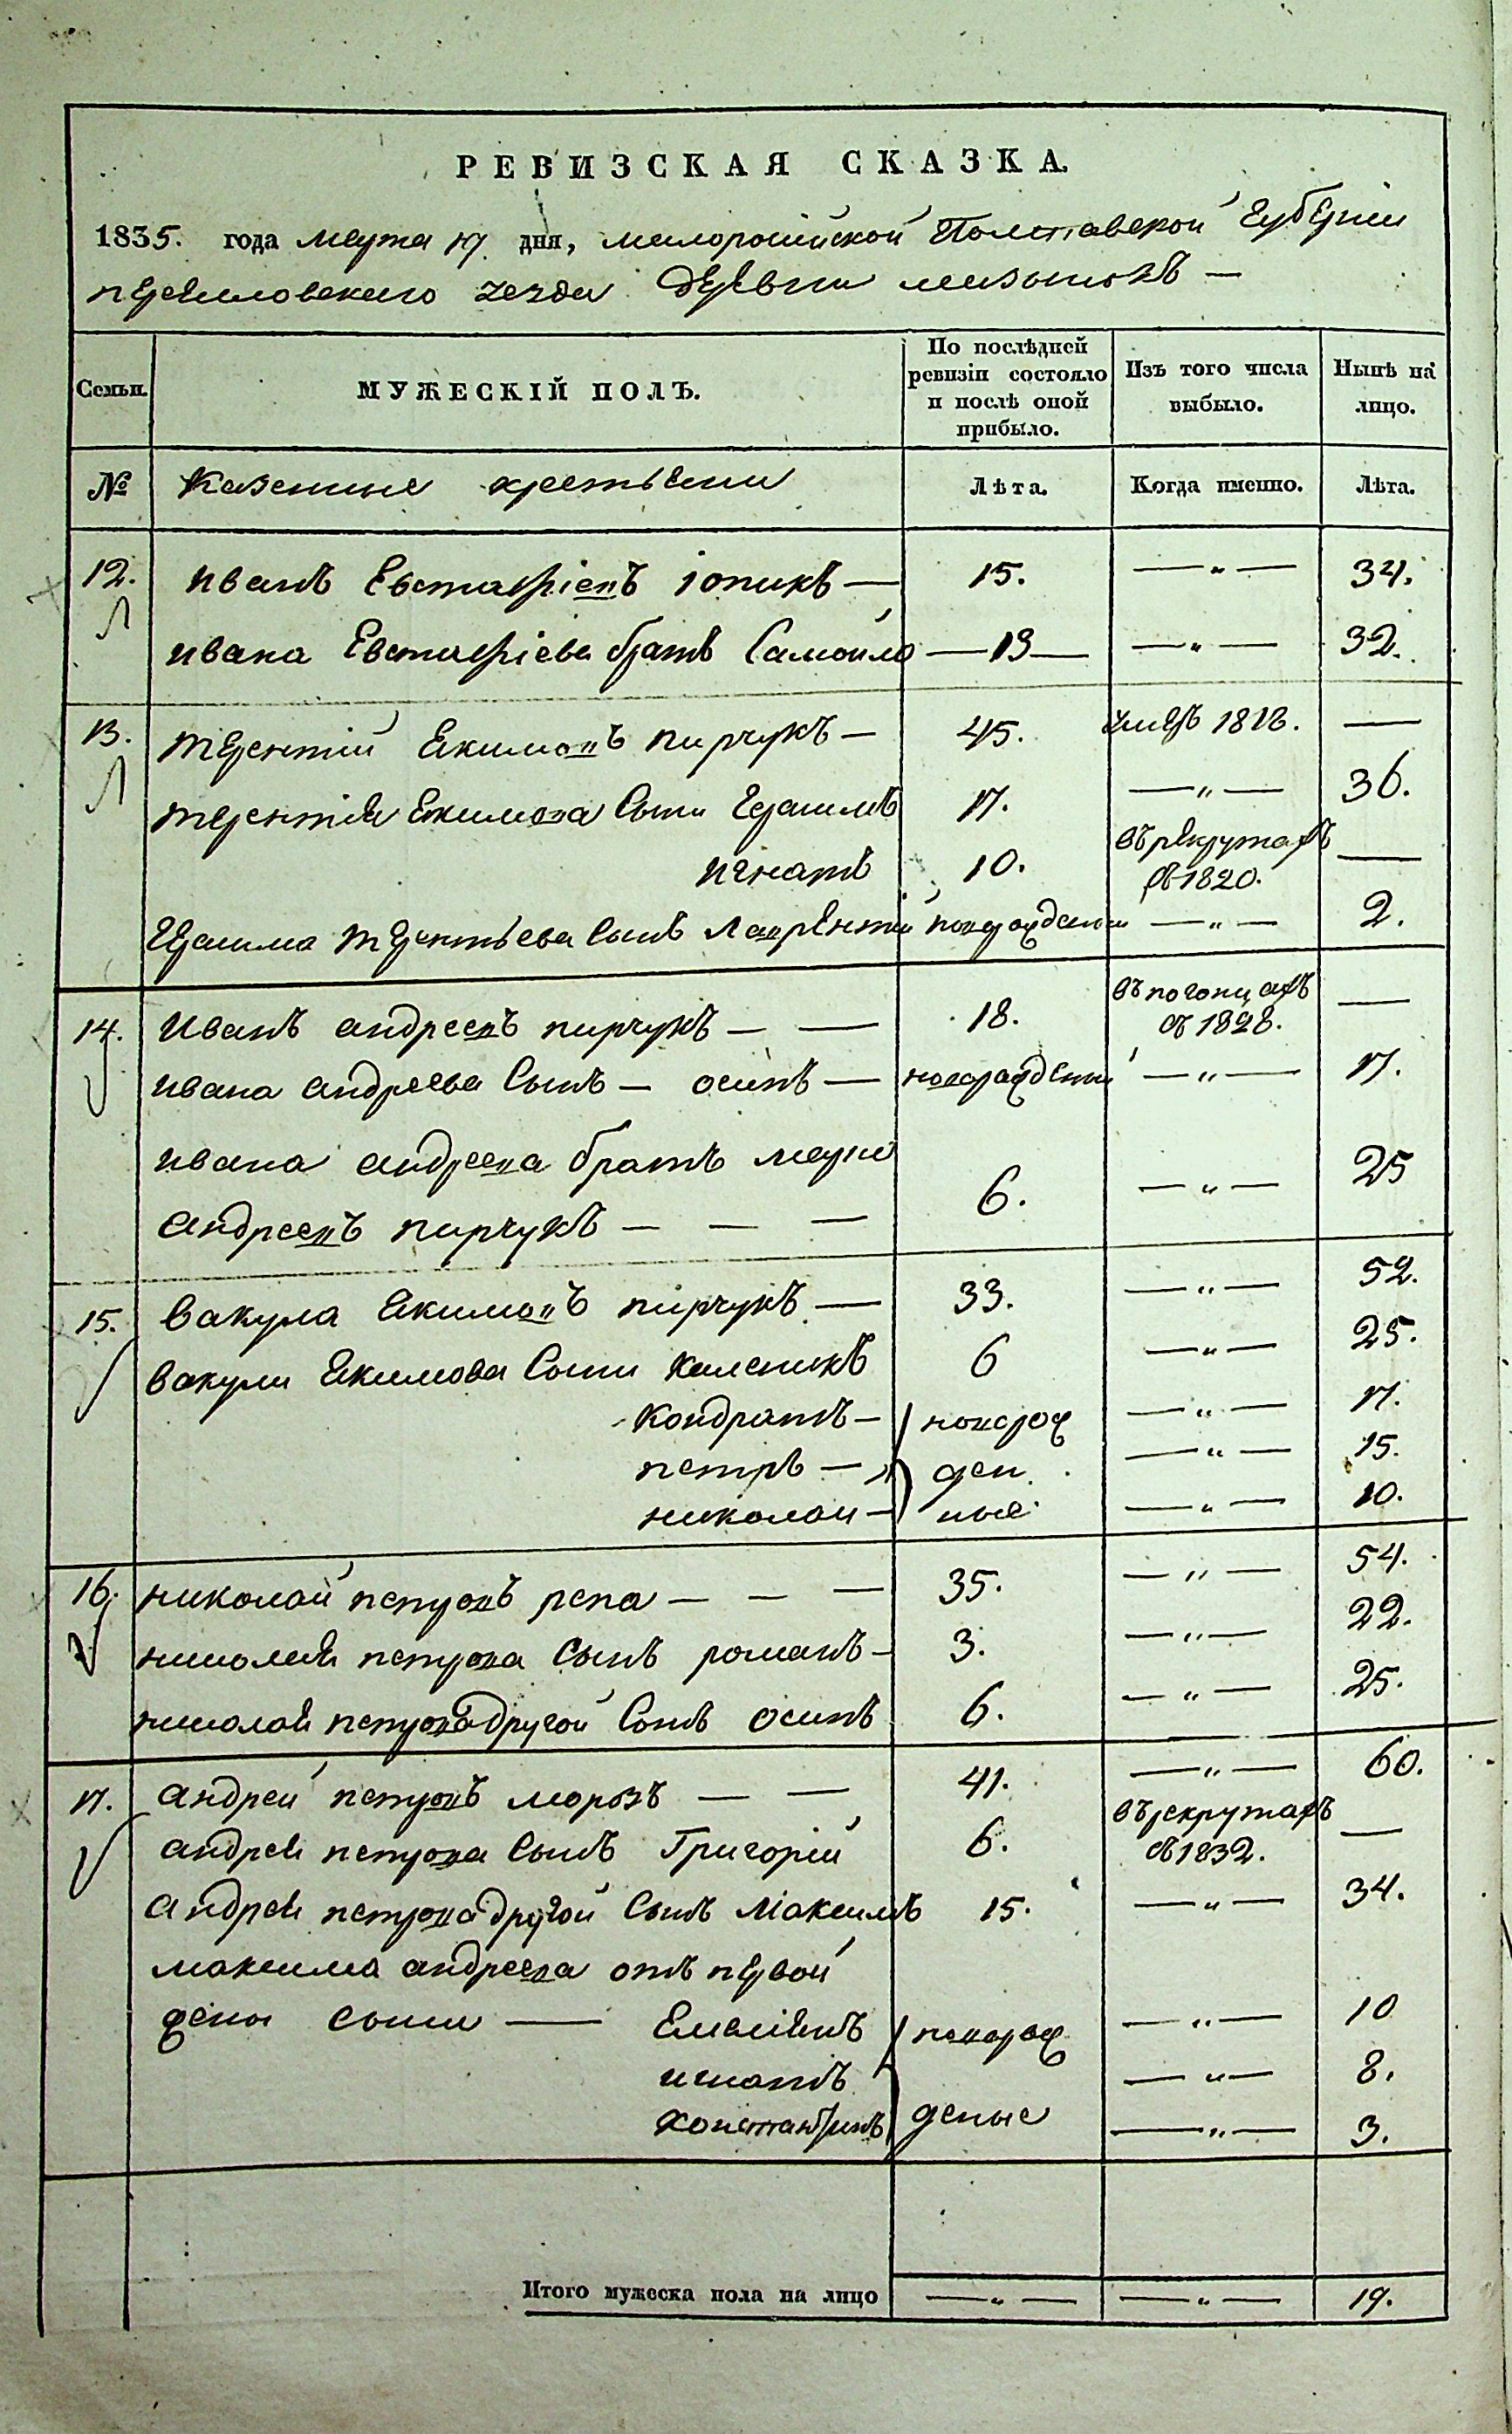 РЕВИЗСКАЯ СКАЗКА.
1835. года марта 19 дня, малоросийской Полтавской Губернiи
уезда Деревни
Семьи.
МУЖЕСКІЙ ПОЛЪ.
По послѣдней ревизіи состояло и послѣ оной прибыло.
Изъ того числа выбыло.
Нынѣ на лицо.
№ Казенные крестьяни Лѣта. Когда именно. Лѣта.
12. иванъ Евстафіевъ —— 15. —„— 34.
ивана Евстафіева братъ Самойло —13— —„— 32.
13. терентій Екимовъ пирчукъ — 45. умеръ 1818. —
терентія Екимова Сыни Герасимъ 17. —„— 36.
игнатъ 10. въ рекрутахъ —
съ 1820.
Герасима терентьева Сынъ лаврентій новорожденый —„— 2.
14. Иванъ андреевъ пирчукъ — — 18. въ погонцахъ —
съ 1828.
ивана андреева Сынъ — осипъ — новорожденый —„— 17.
ивана андреева братъ марко
андреевъ пирчукъ — — — 6. —„— 25
15. Вакула Екимовъ пирчукъ — 33. —„— 52.
вакули Екимова Сыни каленикъ 6 —„— 25.
кондратъ — новорож —„— 17.
петръ — ден —„— 15.
николай — ные —„— 10.
16. николай петровъ репа — — — 35. —„— 54.
николая петрова Сынъ романъ — 3. —„— 22.
николая петрова другой Сынъ осипъ 6. —„— 25.
17. андрей петровъ морозъ — — 41. —„— 60.
андрея петрова Сынъ Григорій 6. въ рекрутахъ —
съ 1832.
андрея петрова другой Сынъ Максимъ 15. —„— 34.
максима андреева отъ первой
жены сыни — Емеліянъ новорож —„— 10
игнатъ —„— 8.
константинъ деные —„— 3.
Итого мужеска пола на лицо —„— —„— 19.